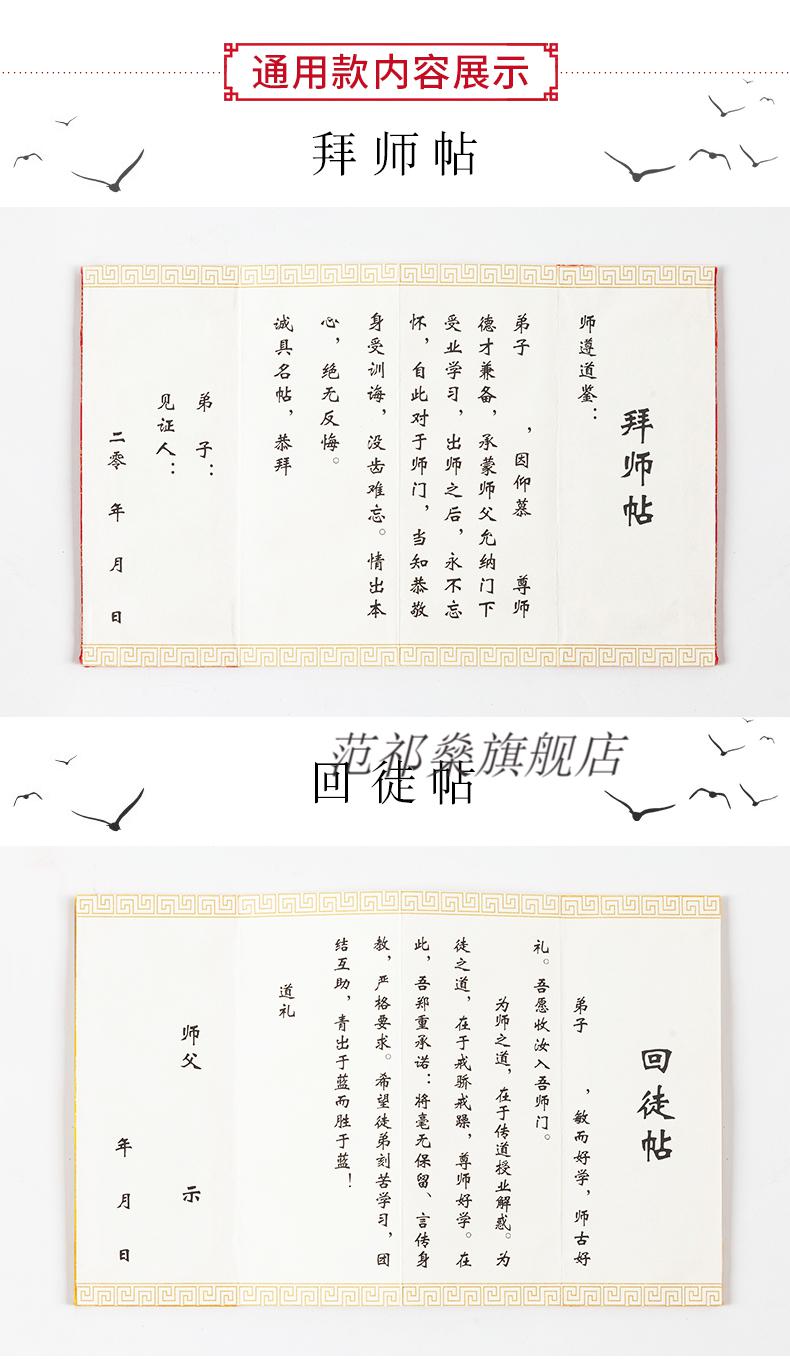 通用款内容展示
拜师帖
拜师帖
师遵道鉴：
弟子　　，因仰慕　　尊师
德才兼备，承蒙师父允纳门下
受业学习，出师之后，永不忘
怀，自此对于师门，当知恭敬
身受训诲，没齿难忘。情出本
心，绝无反悔。
诚具名帖，恭拜
弟子：
见证人：
二零　年　月　日
范祁燊旗舰店
回徒帖
回徒帖
弟子　　，敏而好学，师古好
礼。吾愿收汝入吾师门。
为师之道，在于传道授业解惑。为
徒之道，在于戒骄戒躁，尊师好学。在
此，吾郑重承诺：将毫无保留、言传身
教，严格要求。希望徒弟刻苦学习，团
结互助，青出于蓝而胜于蓝！
道礼
师父　　示
年　月　日